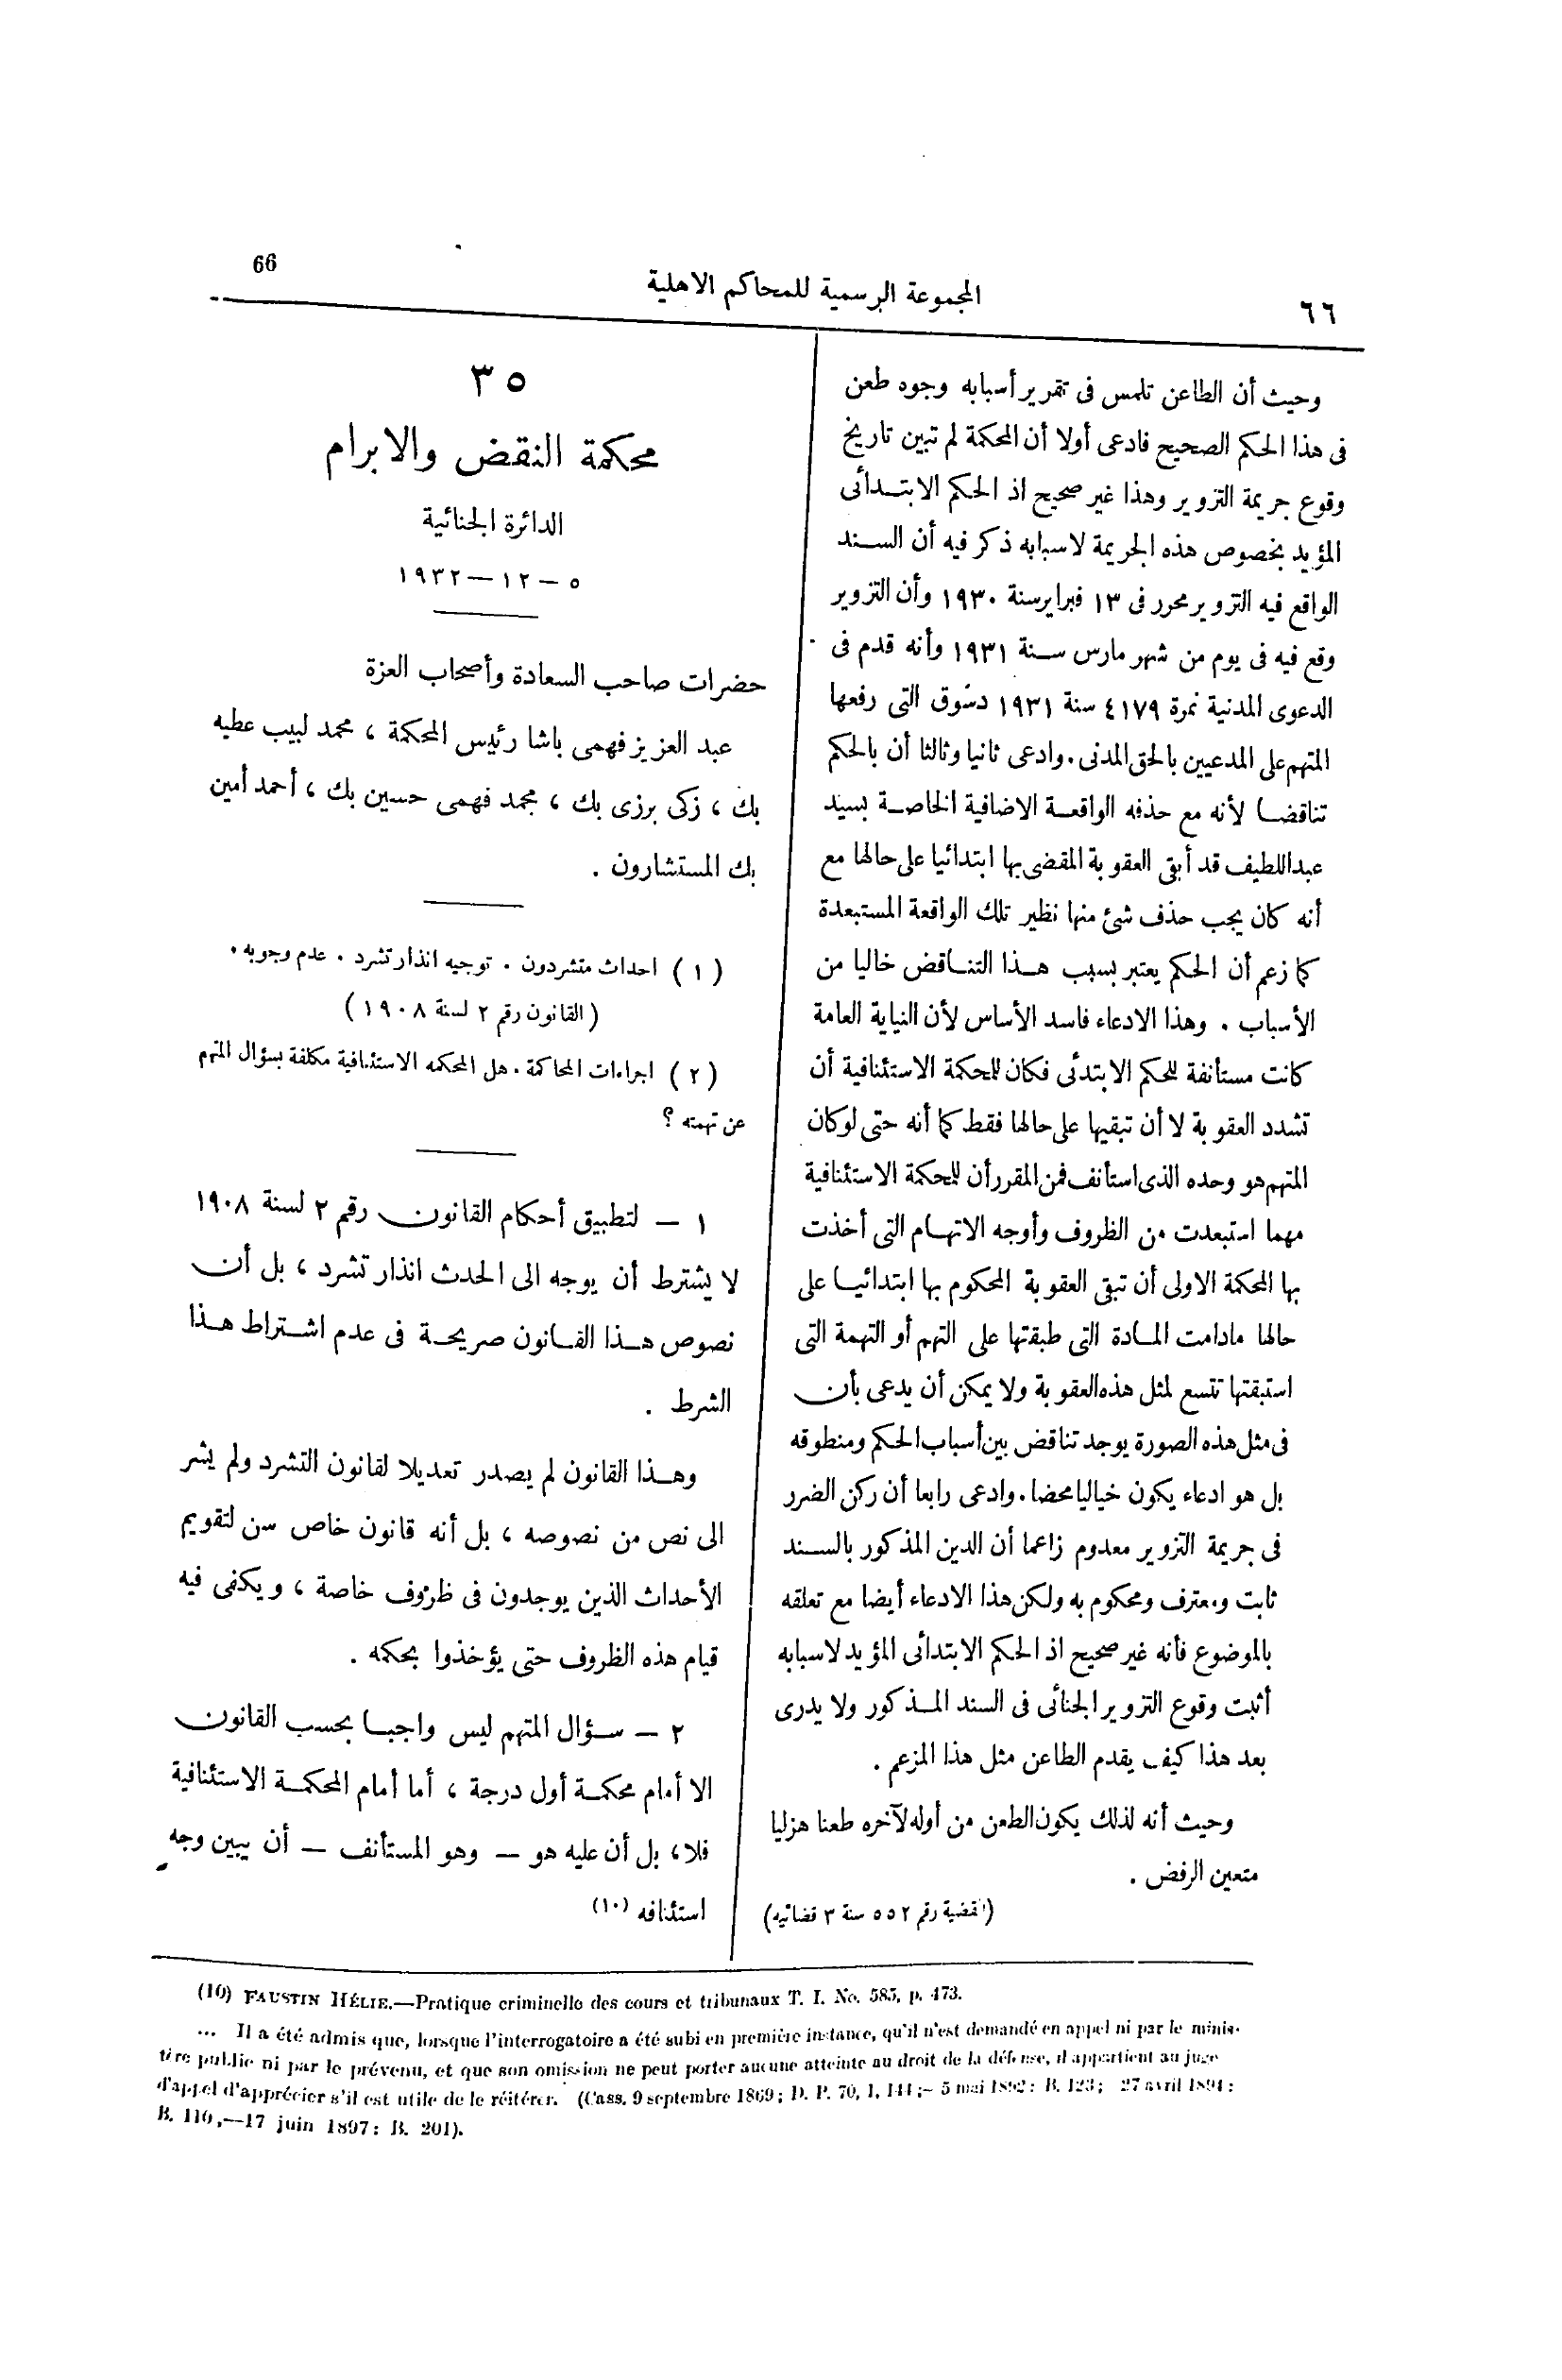 66
المجموعة الرسمية للمحاكم الاهلية
٦٦
وحيث أن الطاعن تلمس فى تقرير أسبابه وجوه طعن
فى هذا الحكم الصحيح فادعى أولا أن المحكمة لم تبين تاريخ
وقوع جريمة التزوير وهذا غير صحيح اذ الحكم الابتـدائى
المؤيد بخصوص هذه الجريمة لاسبابه ذكر فيه أن السـند
الواقع فيه التزوير محرر فى ١٣ فبراير سنة ١٩٣٠ وأن التزوير
وقع فيه فى يوم من شهر مارس سـنة ١٩٣١ وأنه قدم فى
الدعوى المدنية نمرة ٤١٧٩ سنة ١٩٣١ دسوق التى رفعها
المتهم على المدعيين بالحق المدنى. وادعى ثانيا وثالثا أن بالحكم
تناقضـا لأنه مع حذفه الواقعـة الاضافية الخاصـة بسيد
عبد اللطيف قد أبقى العقوبة المقضى بها ابتدائيا على حالها مع
أنه كان يجب حذف شئ منها نظير تلك الواقعة المستبعدة
كما زعم أن الحكم يعتبر بسبب هـذا التنـاقض خاليا من
الأسباب . وهذا الادعاء فاسد الأساس لأن النيابة العامة
كانت مستأنفة للحكم الابتدئى فكان للمحكمة الاستئنافية أن
تشدد العقوبة لا أن تبقيها على حالها فقط كما أنه حتى لو كان
المتهم هو وحده الذى استأنف فمن المقرر أن للمحكمة الاستئنافية
مهما استبعدت من الظروف وأوجه الاتهـام التى أخذت
بها المحكمة الاولى أن تبقى العقوبة المحكوم بها ابتدائيـا على
حالها مادامت المـادة التى طبقتها على التهم أو التهمة التى
استبقتها تتسع لمثل هذه العقوبة ولا يمكن أن يدعى بأن
فى مثل هذه الصورة يوجد تناقض بين أسباب الحكم ومنطوقه
بل هو ادعاء يكون خياليا محضا. وادعى رابعا أن ركن الضرر
فى جريمة التزوير معدوم زاعما أن الدين المذكور بالسـند
ثابت ومعترف ومحكوم به ولكن هذا الادعاء أيضا مع تعلقه
بالموضوع فأنه غير صحيح اذ الحكم الابتدائى المؤيد لاسبابه
أثبت وقوع التزوير الجنائى فى السند المـذكور ولا يدرى
بعد هذا كيف يقدم الطاعن مثل هذا المزعم .
وحيث أنه لذلك يكون الطعن من أوله لآخره طعنا هزليا
متعين الرفض .
(القضية رقم ٥٥٢ سنة ٣ قضائيه)
٣٥
محكمة النقض والابرام
الدائرة الجنائية
٥ – ١٢ – ١٩٣٢
حضرات صاحب السعادة وأصحاب العزة
عبد العزيز فهمى باشا رئيس المحكمة ، محمد لبيب عطيه
بك ، زكى برزى بك ، محمد فهمى حسين بك ، أحمد أمين
بك المستشارون .
(١) احداث متشردون . توجيه انذار تشرد . عدم وجوبه .
(القانون رقم ٢ لسنة ١٩٠٨)
(٢) اجراءات المحاكمة . هل المحكمه الاستئنافية مكلفة بسؤال المتهم
عن تهمته ؟
١ – لتطبيق أحكام القانون رقم ٢ لسنة ١٩٠٨
لا يشترط أن يوجه الى الحدث انذار تشرد ، بل أن
نصوص هـذا القـانون صريحـة فى عدم اشـتراط هـذا
الشرط .
وهـذا القانون لم يصدر تعديلا لقانون التشرد ولم يشر
الى نص من نصوصه ، بل أنه قانون خاص سن لتقويم
الأحداث الذين يوجدون فى ظروف خاصة ، ويكفى فيه
قيام هذه الظروف حتى يؤخذوا بحكمه .
٢ – سـؤال المتهم ليس واجبـا بحسب القانون
الا أمام محكمـة أول درجة ، أما أمام المحكمـة الاستئنافية
فلا ، بل أن عليه هو – وهو المستأنف – أن يبين وجه
استئنافه (١٠)
(10) FAUSTIN HÉLIE.—Pratique criminelle des cours et tribunaux T. I. No. 585, p. 473.
... Il a été admis que, lorsque l'interrogatoire a été subi en première instance, qu'il n'est demandé en appel ni par le minis-
tère public ni par le prévenu, et que son omission ne peut porter aucune atteinte au droit de la défense, il appartient au juge
d'appel d'apprécier s'il est utile de le réitérer. (Cass. 9 septembre 1869; D. P. 70, 1, 144;– 5 mai 1892: B. 123; 27 avril 1894:
B. 110,—17 juin 1897: B. 201).